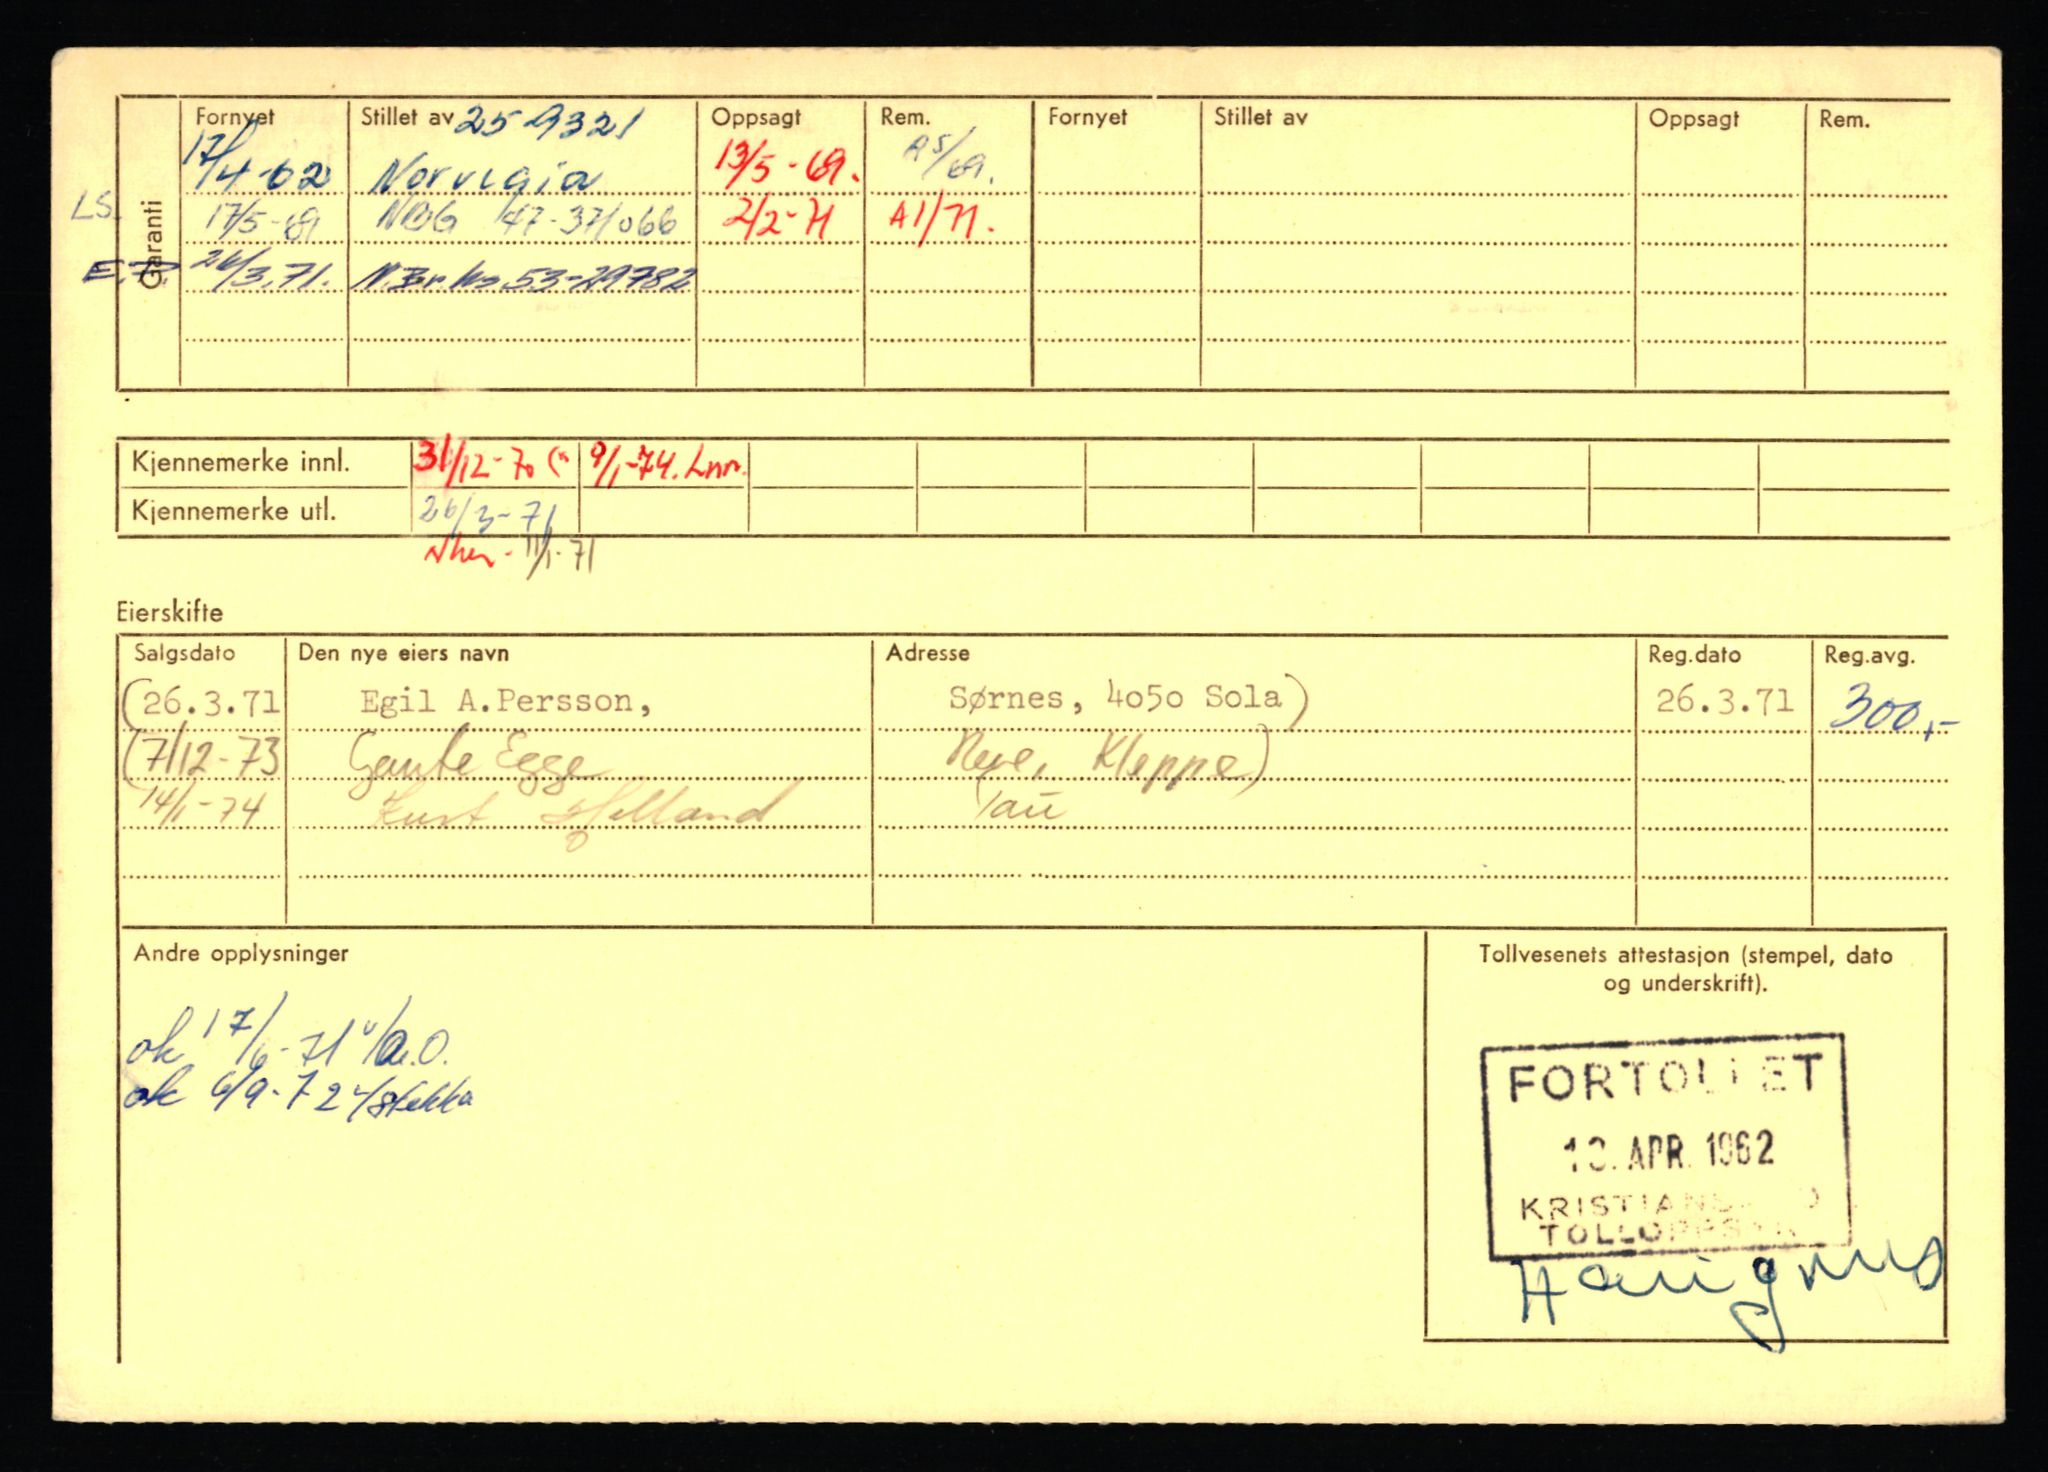 Garanti
Fornyet Stillet av 25-9321 Oppsagt Rem. Fornyet Stillet av Oppsagt Rem.
17/4-62 Norvegia 13/5-69. A5/69.
LS. 17/5-69 NBG 47-371066 2/2-71 A1/71.
26/3.71. 53-29782
Kjennemerke innl. 31/12-70 9/1-74.
Kjennemerke utl. 26/3-71
11/1-71
Eierskifte
Salgsdato Den nye eiers navn Adresse Reg.dato Reg.avg.
(26.3.71 Egil A.Persson, Sørnes, 4050 Sola) 26.3.71 300,-
(7/12-73 Gaute Egge Kleppe)
14/1-74 Kurt Helland Tau
Andre opplysninger
Tollvesenets attestasjon (stempel, dato
og underskrift).
ok 17/6-71
ok 6/9-72
FORTOLLET
APR. 1962
KRISTIANSAND
TOLLOPPSYN